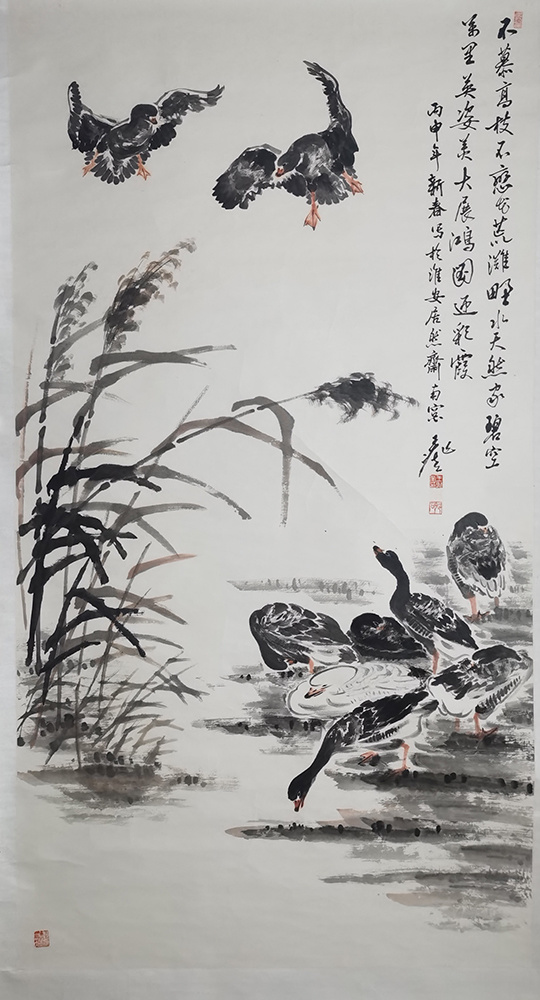 不慕高枝不恋花荒滩野水天然家碧空
万里英姿美大展鸿图迎彩霞
丙申年新春写於淮安居然斋南窗